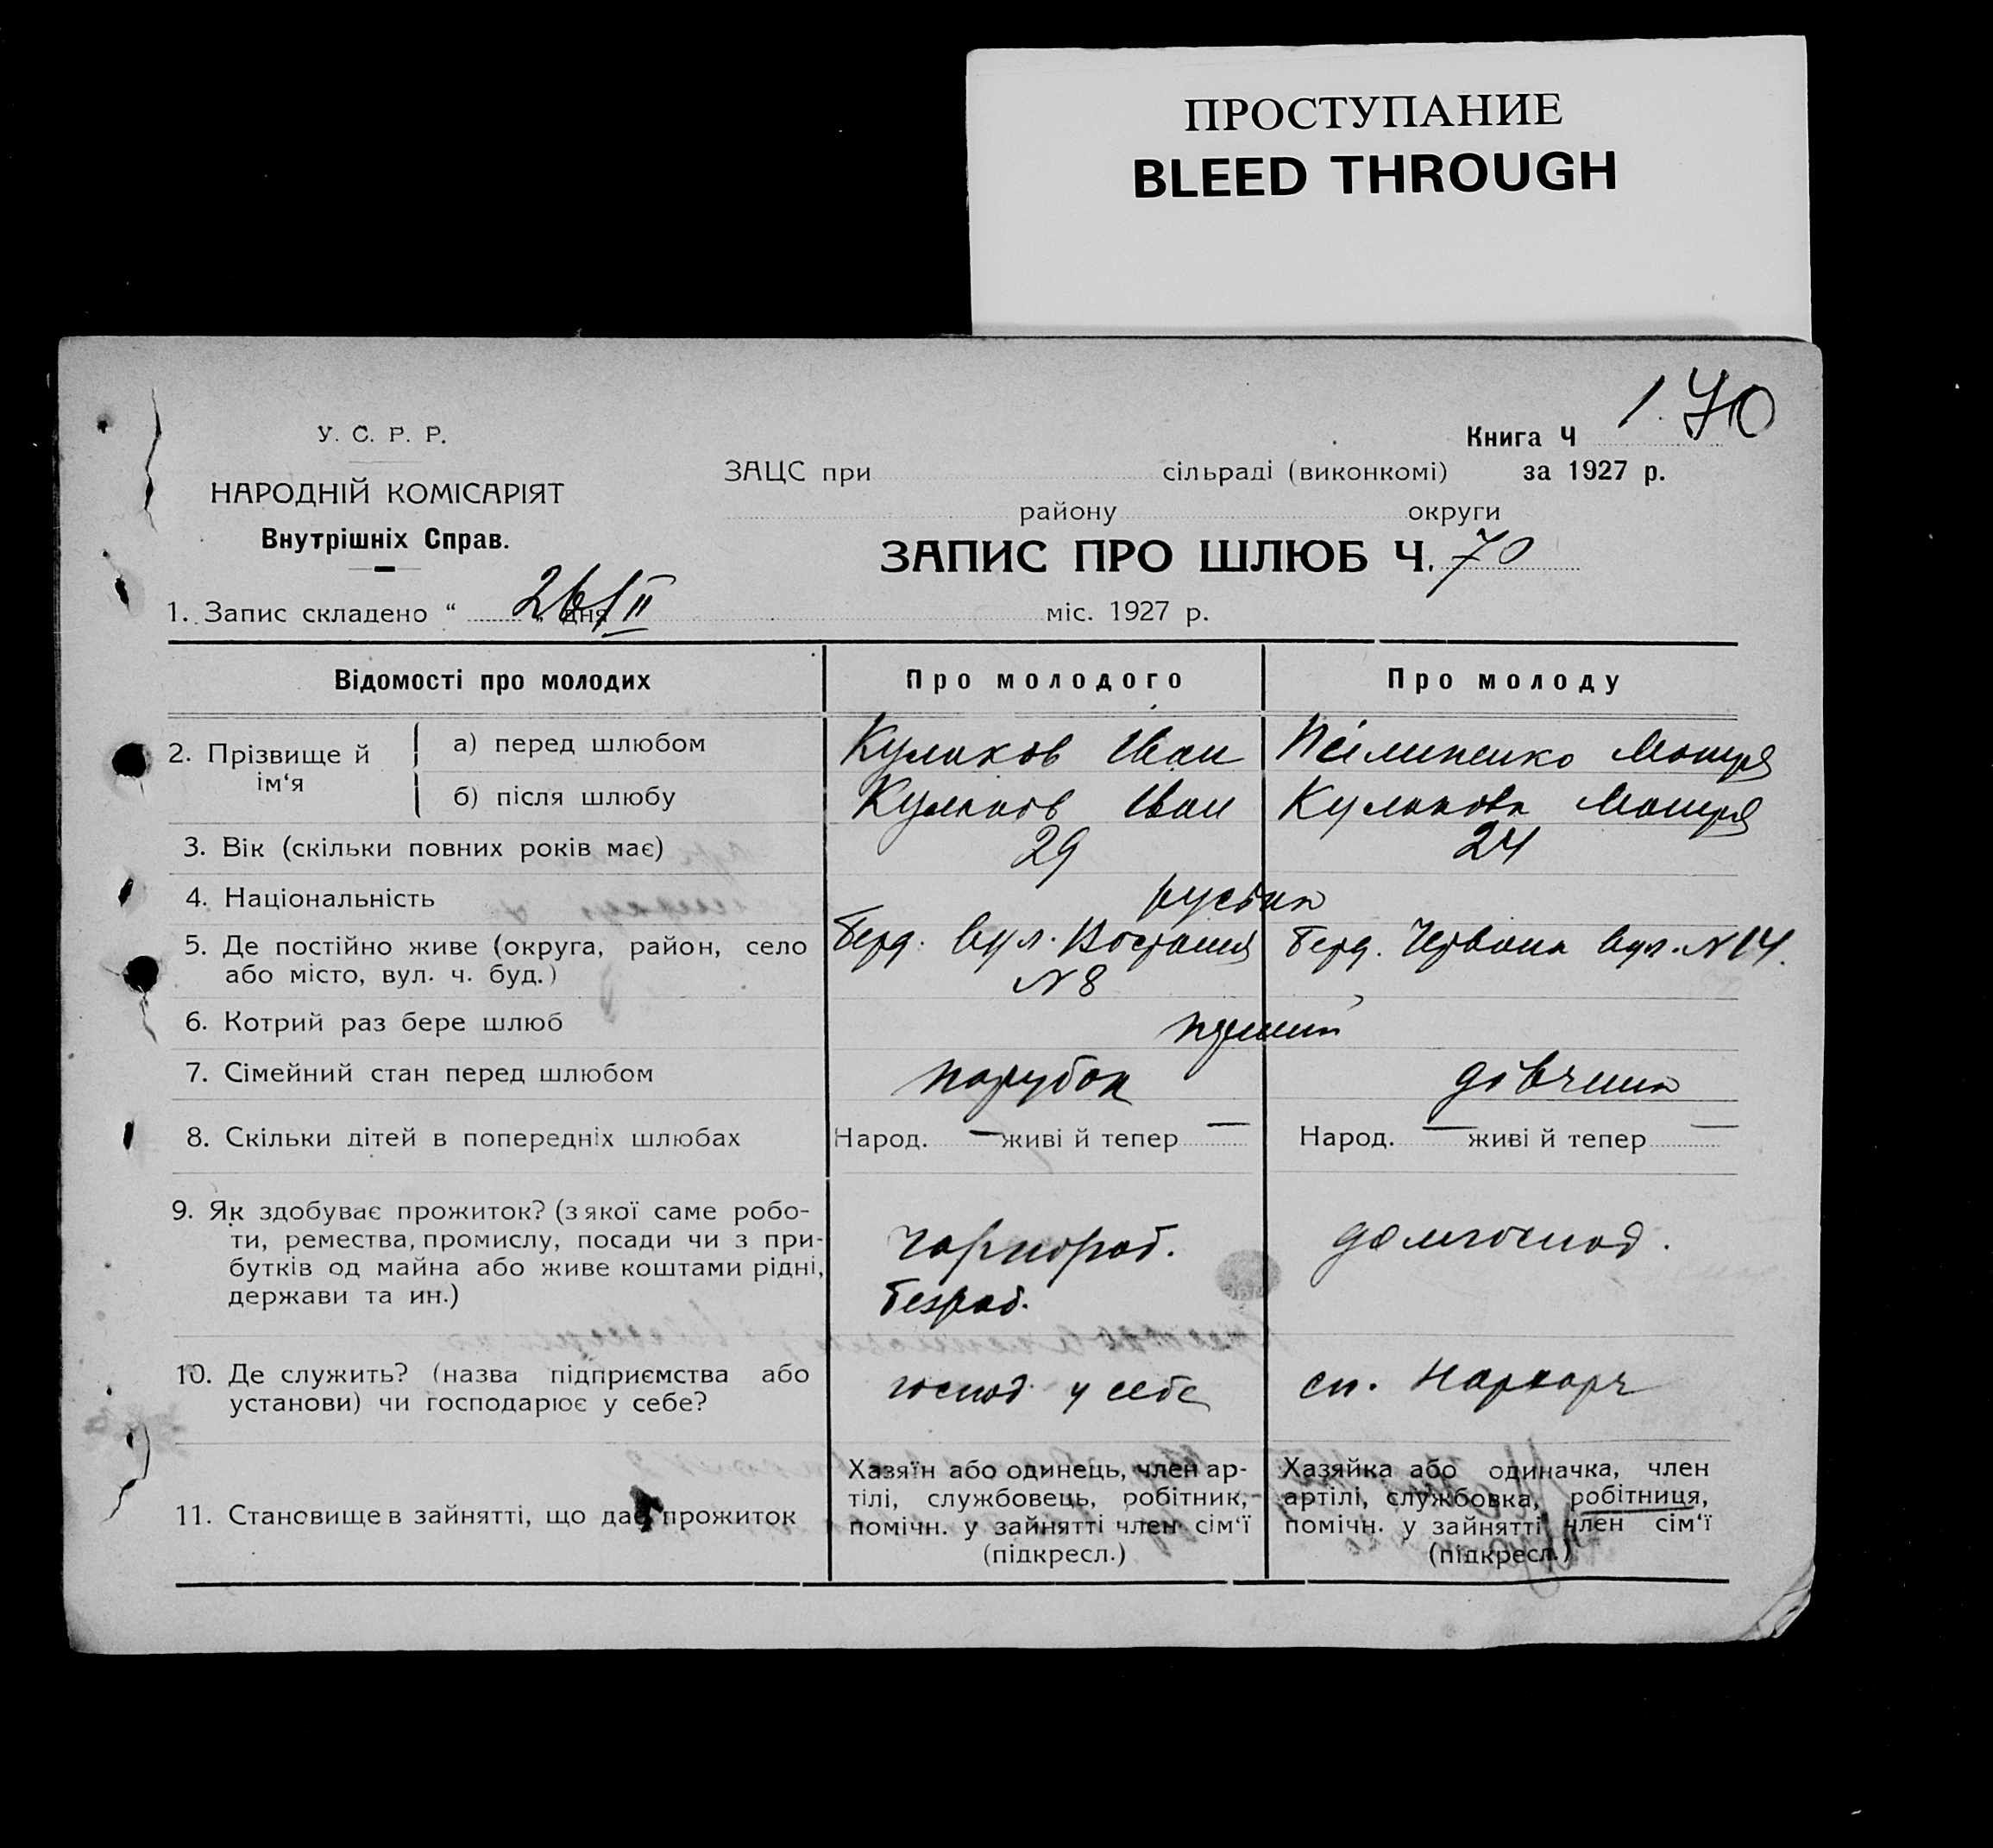 ПРОСТУПАНИЕ
BLEED THROUGH
1. 70
У. С. Р. Р.
НАРОДНІЙ КОМІСАРІЯТ
Внутрішніх Справ.
Книга Ч
ЗАЦС при сільраді (виконкомі) за 1927 р.
району округи
ЗАПИС ПРО ШЛЮБ Ч. 70
1. Запис складено “ 26/II дня міс. 1927 р.
Відомості про молодих
Про молодого
Про молоду
2. Прізвище й ім‘я
а) перед шлюбом
Кулаков Іван
Мотря
б) після шлюбу
Кулаков Іван
Кулакова Мотря
3. Вік (скільки повних років має)
29
24
4. Національність
5. Де постійно живе (округа, район, село
або місто, вул. ч. буд.)
Берд. вул.
N 8
Берд. Червона вул. N 14.
6. Котрий раз бере шлюб
перший
7. Сімейний стан перед шлюбом
парубок
дівчина
8. Скільки дітей в попередніх шлюбах
Народ. — живі й тепер —
Народ. — живі й тепер —
9. Як здобуває прожиток? (з якої саме робо-
ти, ремества, промислу, посади чи з при-
бутків од майна або живе коштами рідні,
держави та ин.)
чорнороб.
безроб.
домгоспод.
10. Де служить? (назва підприємства або
установи) чи господарює у себе?
господ. у себе
сп. Нархарч
11. Становище в зайнятті, що дає прожиток
Хазяїн або одинець, член ар-
тілі, службовець, робітник,
помічн. у зайнятті член сім‘ї
(підкресл.)
Хазяйка або одиначка, член
артілі, службовка, робітниця,
помічн. у зайнятті член сім‘ї
(підкресл.)